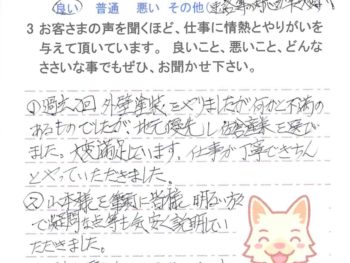 良い 普通 悪い その他
3 お客さまの声を聞くほど、仕事に情熱とやりがいを
与えて頂いています。 良いこと、悪いこと、どんな
ささいな事でもぜひ、お聞かせ下さい。
①過去2回 外壁塗装をやりましたが何かと不満の
あるものでしたが、地元優先し
ました。大変満足しています。仕事が丁寧できちん
とやっていただきました。
②山本様を筆頭に皆様 明るい方
で疑問な点等も気安く説明してい
ただきました。